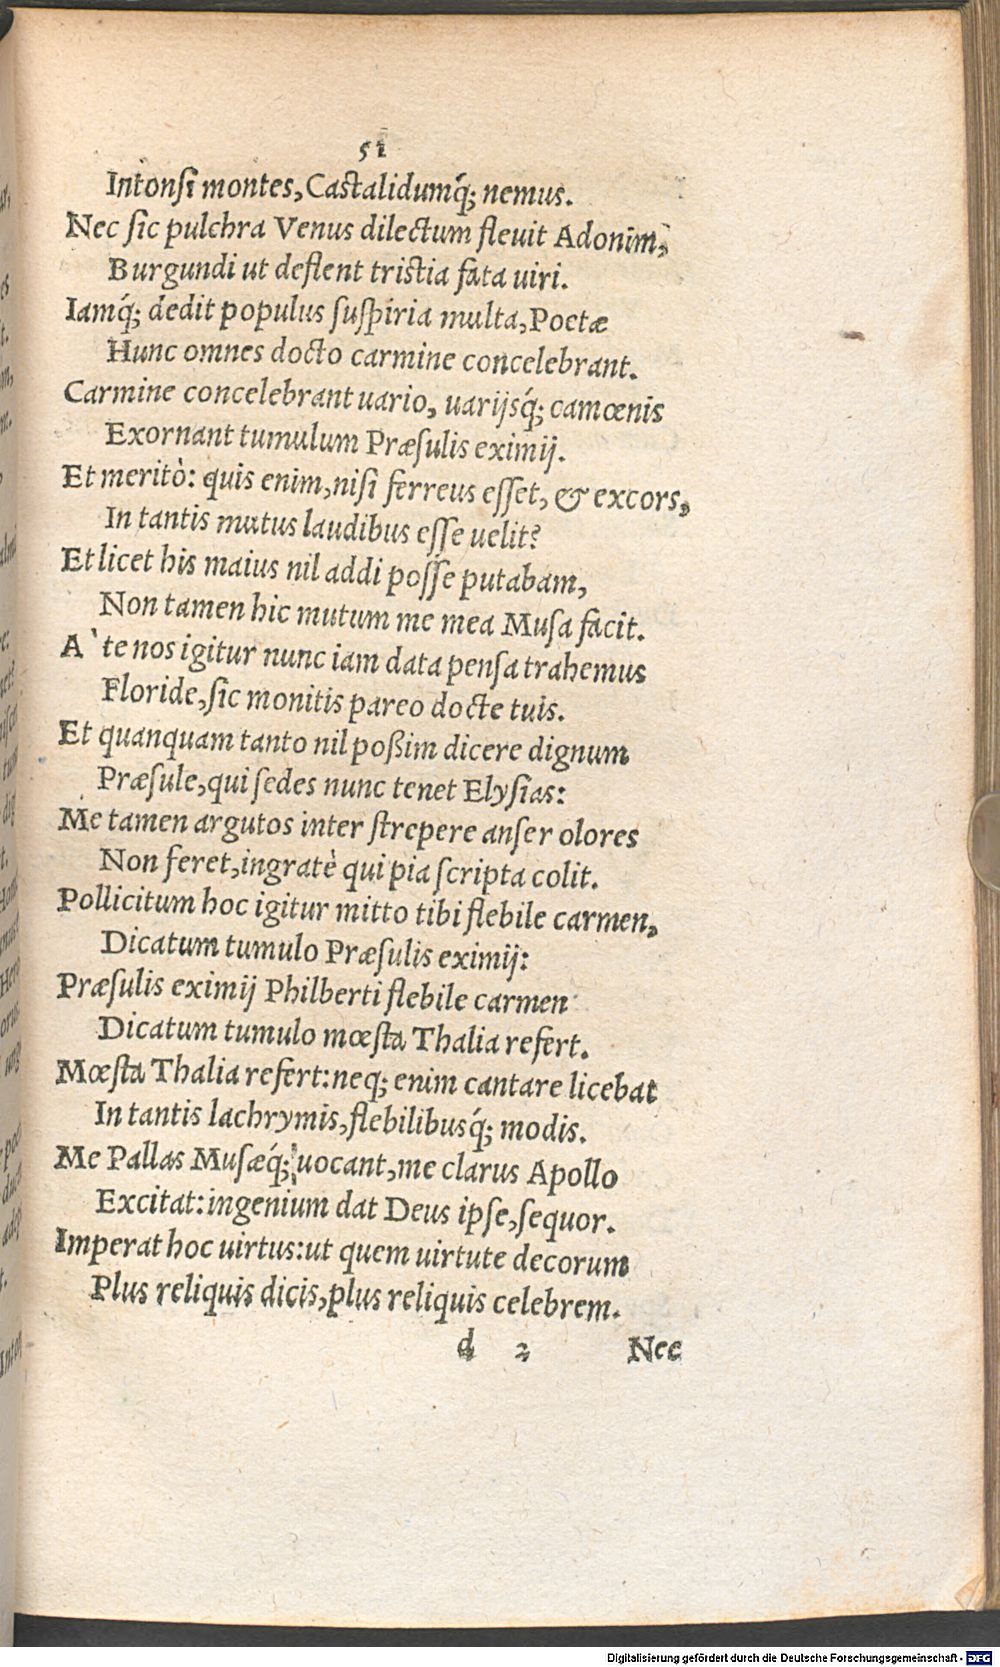 51
Intonsi montes, Castalidumq́; nemus.
Nec sic pulchra Venus dilectum fleuit Adonim,
Burgundi ut deflent tristia fata uiri.
Iamq́; dedit populus suspiria multa, Poetæ
Hunc omnes docto carmine concelebrant.
Carmine concelebrant uario, uarijsq́; camœnis
Exornant tumulum Præsulis eximij.
Et meritò: quis enim, nisi ferreus esset, & excors,
In tantis mutus laudibus esse uelit?
Et licet his maius nil addi posse putabam,
Non tamen hic mutum me mea Musa facit.
A` te nos igitur nunc iam data pensa trahemus
Floride, sic monitis pareo docte tuis.
Et quanquam tanto nil poßim dicere dignum
Præsule, qui sedes nunc tenet Elysias:
Me tamen argutos inter strepere anser olores
Non feret, ingratè qui pia scripta colit.
Pollicitum hoc igitur mitto tibi flebile carmen,
Dicatum tumulo Præsulis eximij:
Præsulis eximij Philberti flebile carmen
Dicatum tumulo mœsta Thalia refert.
Mœsta Thalia refert: neq; enim cantare licebat
In tantis lachrymis, flebilibusq́; modis.
Me Pallas Musæq́; uocant, me clarus Apollo
Excitat: ingenium dat Deus ipse, sequor.
Imperat hoc uirtus: ut quem uirtute decorum
Plus reliquis dicis, plus reliquis celebrem.
d 2 Nec
Digitalisierung gefördert durch die Deutsche Forschungsgemeinschaft - DFG